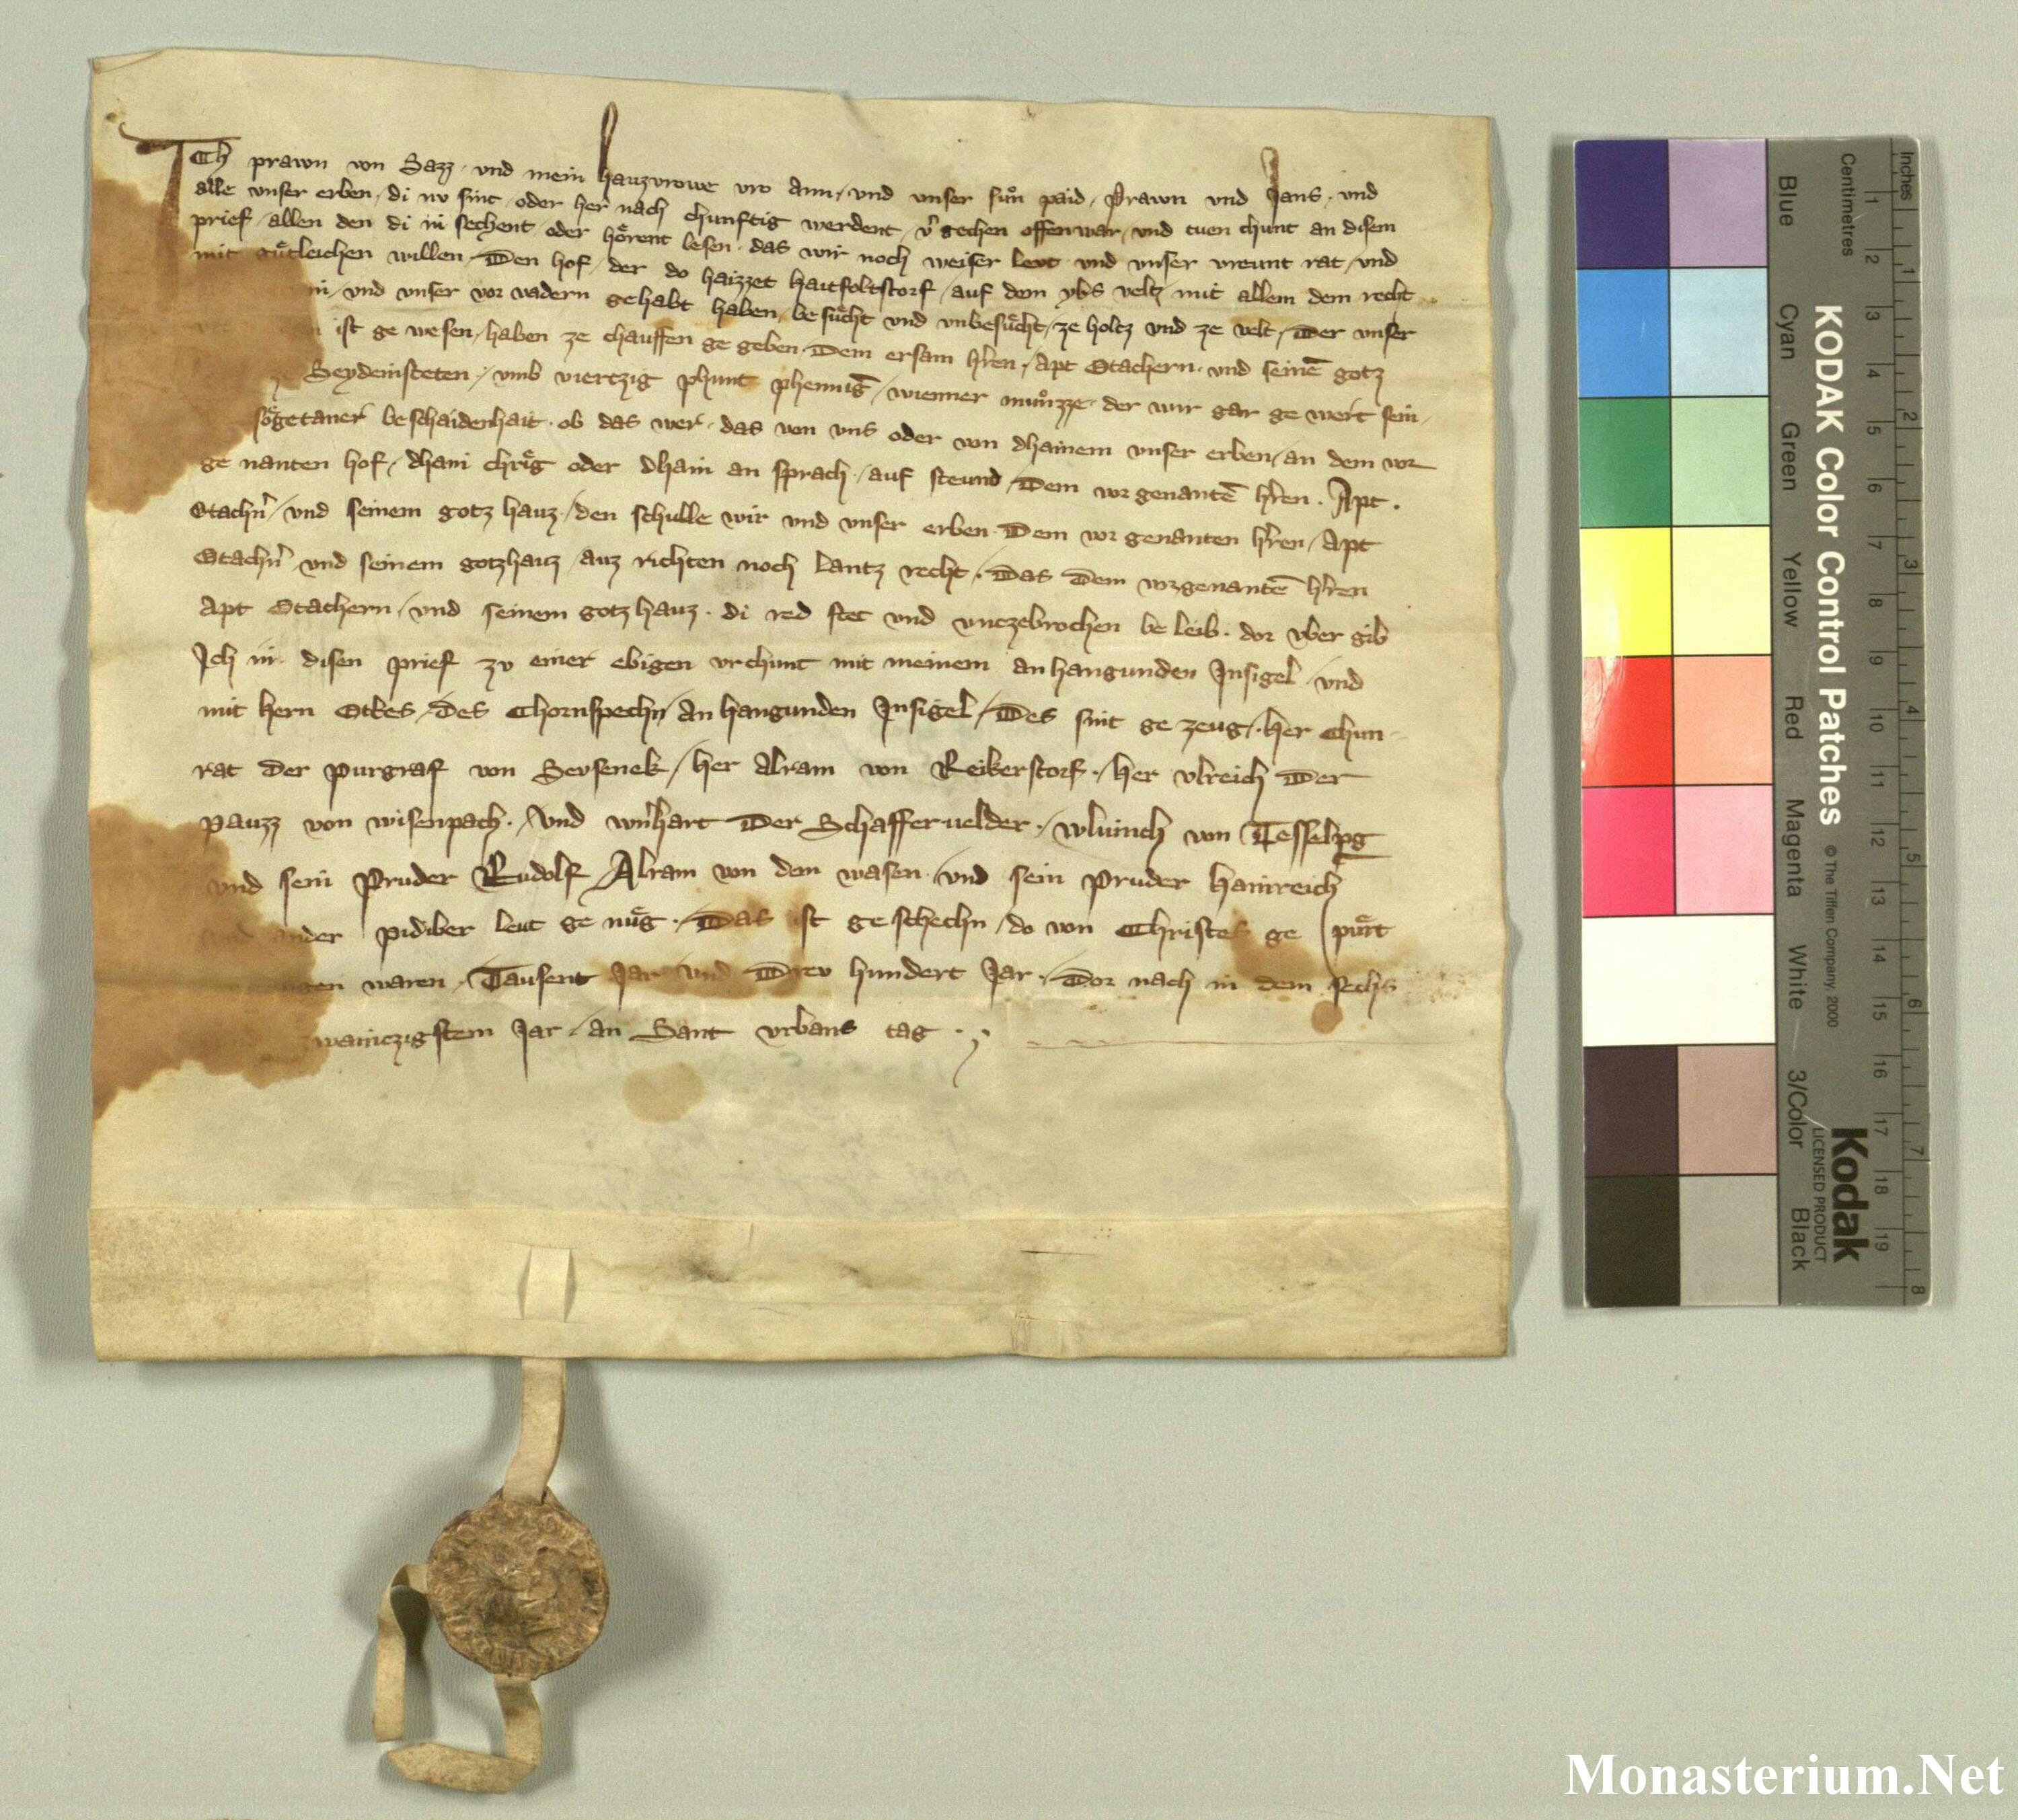 Ich prawn von Sazz · vnd mein hauzvrowe vro Ann / vnd vnser sůn paid / Prawn vnd Jans · vnd
alle vnser erben / di nv sint / oder her nach chunftig werdent / v̉gechen offenwar / vnd tuen chunt an disem
prief / allen den di in sechent / oder hoͤrent lesen · das wir noch weiser levt vnd vnser vreunt rat / vnd
mit guͤtleichen willen / Den hof / der do haizzet haitfoltstorf / auf dem ybs veltz mit allem dem recht
vnd vnser vor vadern gehabt haben / besuͤcht vnd vnbesuͤcht / ze holtz vnd ze velt / Der vnser
ist ge wesen / haben ze chauffen ge geben · Dem ersam hr̉en / Apt Otachern · vnd seinē gotz
ze Seydensteten / vmb viertzig phunt phenniḡ / wienner můnzze · der wir gar ge wert sein /
soͤgetaner beschaidenhait · ob das wer · das von vns oder von dhainem vnser erben / an dem vor
ge nanten hof / dhain chrig oder dhain an sprach / auf steund / Dem vor genantē hr̉en · Apt ·
Otachn̉ / vnd seinem gotz hauz / den schulle wir vnd vnser erben · Dem vor genanten hr̉en / Apt
Otachn̉ vnd seinem gotzhauz / auz richten noch lantz recht · Das Dem vorgenantē hr̉en
Apt Otachern / vnd seinem gotz hauz · di red stet vnd vnczebrochen be leib · dor vber gib
Jch in disen prief zv einer ebigen vrchunt mit meinem an hangunden Jnsigel / vnd
mit hern Ottes / des Chornspechn / an hangunden Jnsigel / Des sint ge zeug / her Chun-
rat der purgraf von Sevsenek / her Alram von Reikerstorf / her vlreich Der
pauzz von wisenpach · / vnd wn̉hart Der Schafferuelder / wluinch von Tesselpg
vnd sein Pruder Rudolf / Alram von dem wasen / vnd sein Pruder hainreich
vnd ander pidiber leut ge nuͤg · Das ist ge schechn / do von Christes ge puͤrt
waren · Tausent Jar vnd Drev hundert Jar · Dor nach in dem sechs
vnd zwainczigstem Jar / an Sant vrbans tag ·
KODAK Color Control Patches © The Tiffen Company, 2000
Kodak
LICENSED PRODUCT
Blue Cyan Green Yellow Red Magenta White 3/Color Black
Centimetres 1 2 3 4 5 6 7 8 9 10 11 12 13 14 15 16 17 18 19
Inches 1 2 3 4 5 6 7 8
Monasterium.Net